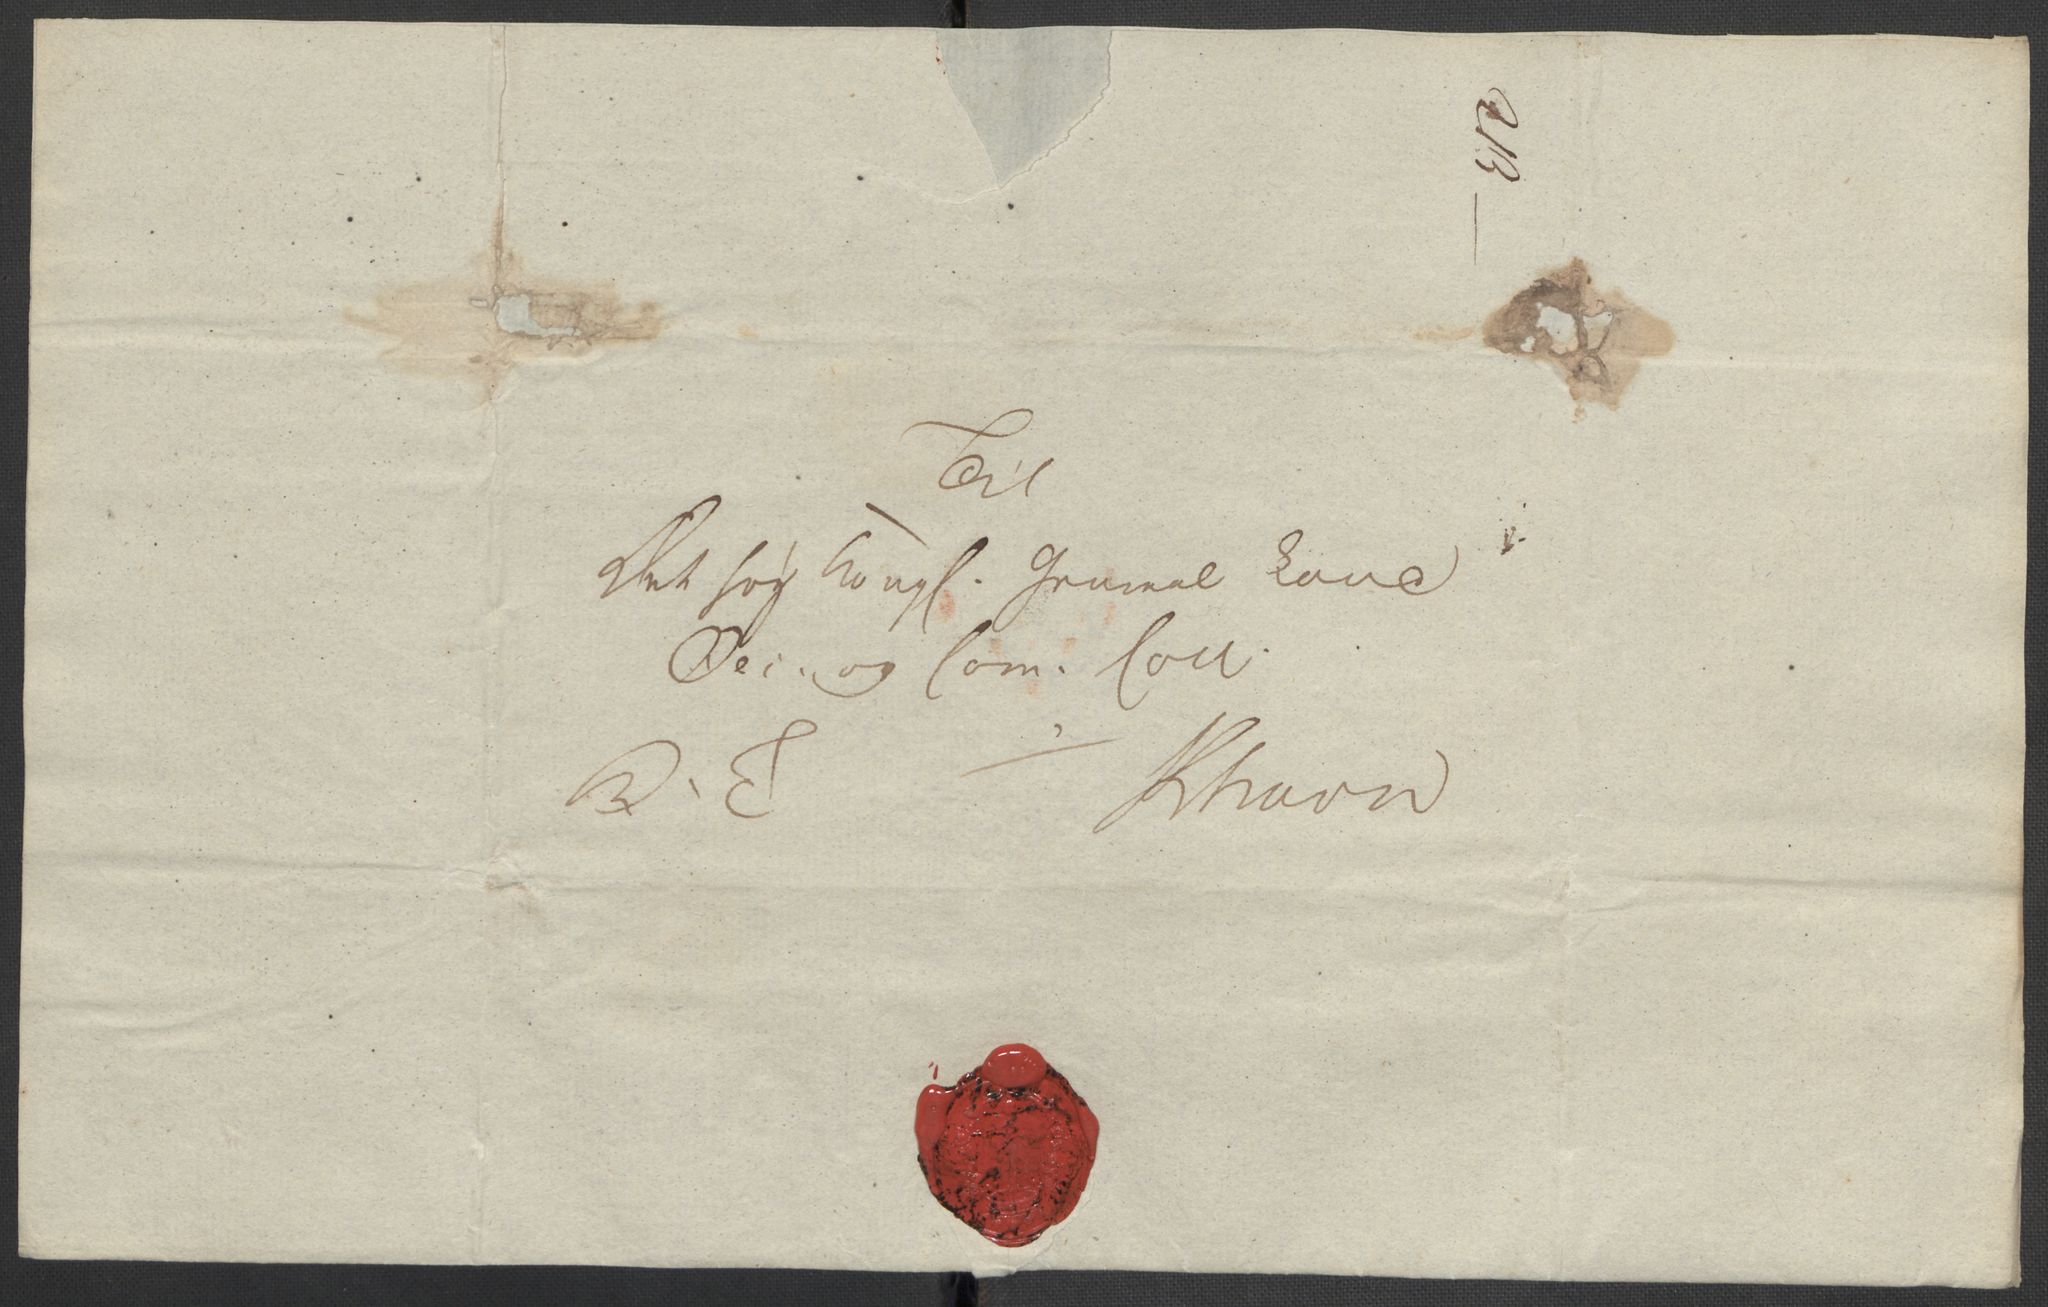 Til
Det høy Kongl. General Land
Oec. og Com. Coll.
K. T. Khavn